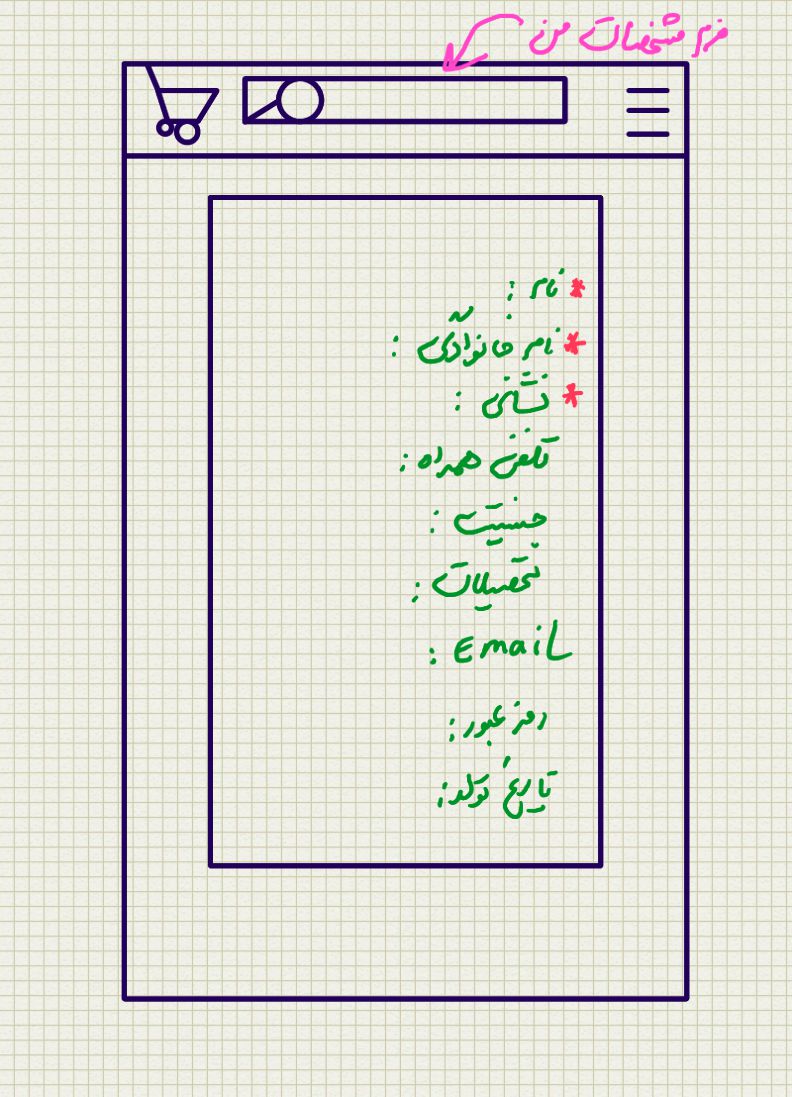 فرم مشخصات من
* نام :
* نام خانوادگی :
* نشانی :
تلفن همراه :
جنسیت :
تحصیلات :
Email :
رمز عبور :
تاریخ تولد :